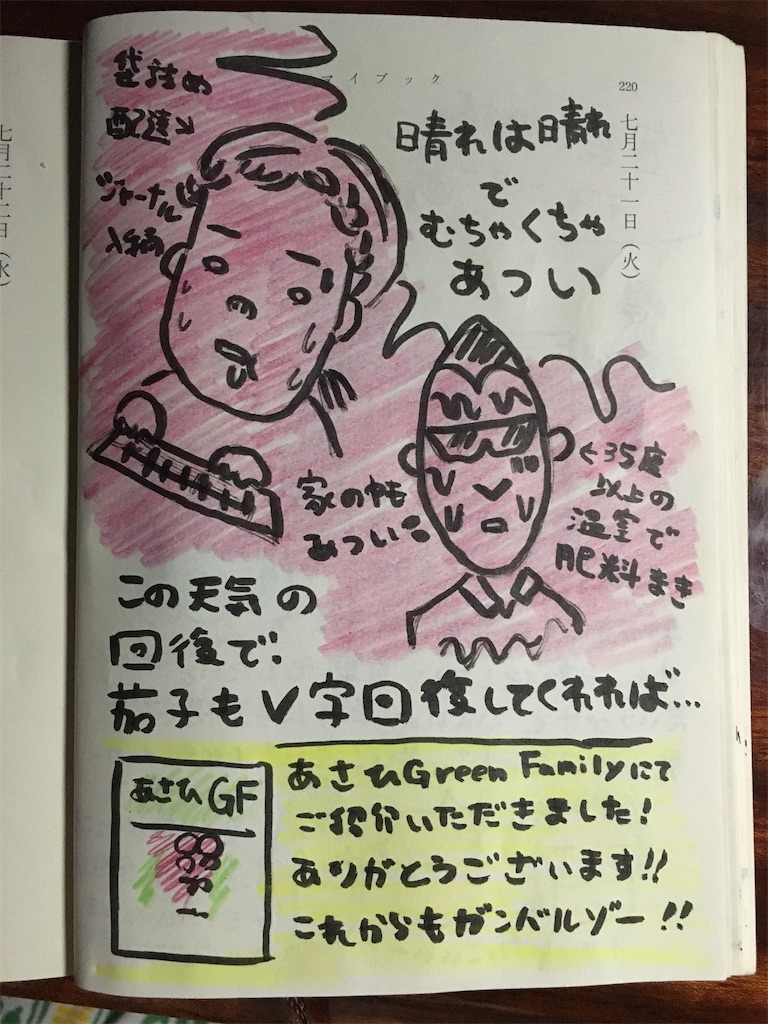 マイブック
220
七月二十一日（火）
七月二十二日（水）
袋詰め
配達↘
ジャーナル
入稿
晴れは晴れ
で
むちゃくちゃ
あつい
家の中も
あつい
←35度
以上の
温室で
肥料まき
この天気の
回復で、
茄子もV字回復してくれれば…
あさひGF
あさひGreen Familyにて
ご紹介いただきました！
ありがとうございます!!
これからもガンバルゾー!!